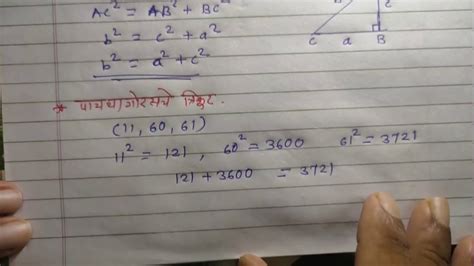 AC² = AB² + BC²
b² = c² + a²
b² = a² + c²
c
C a B
* पायथागोरसचे त्रिकुट.
(11, 60, 61)
11² = 121 , 60² = 3600 61² = 3721
121 + 3600 = 3721